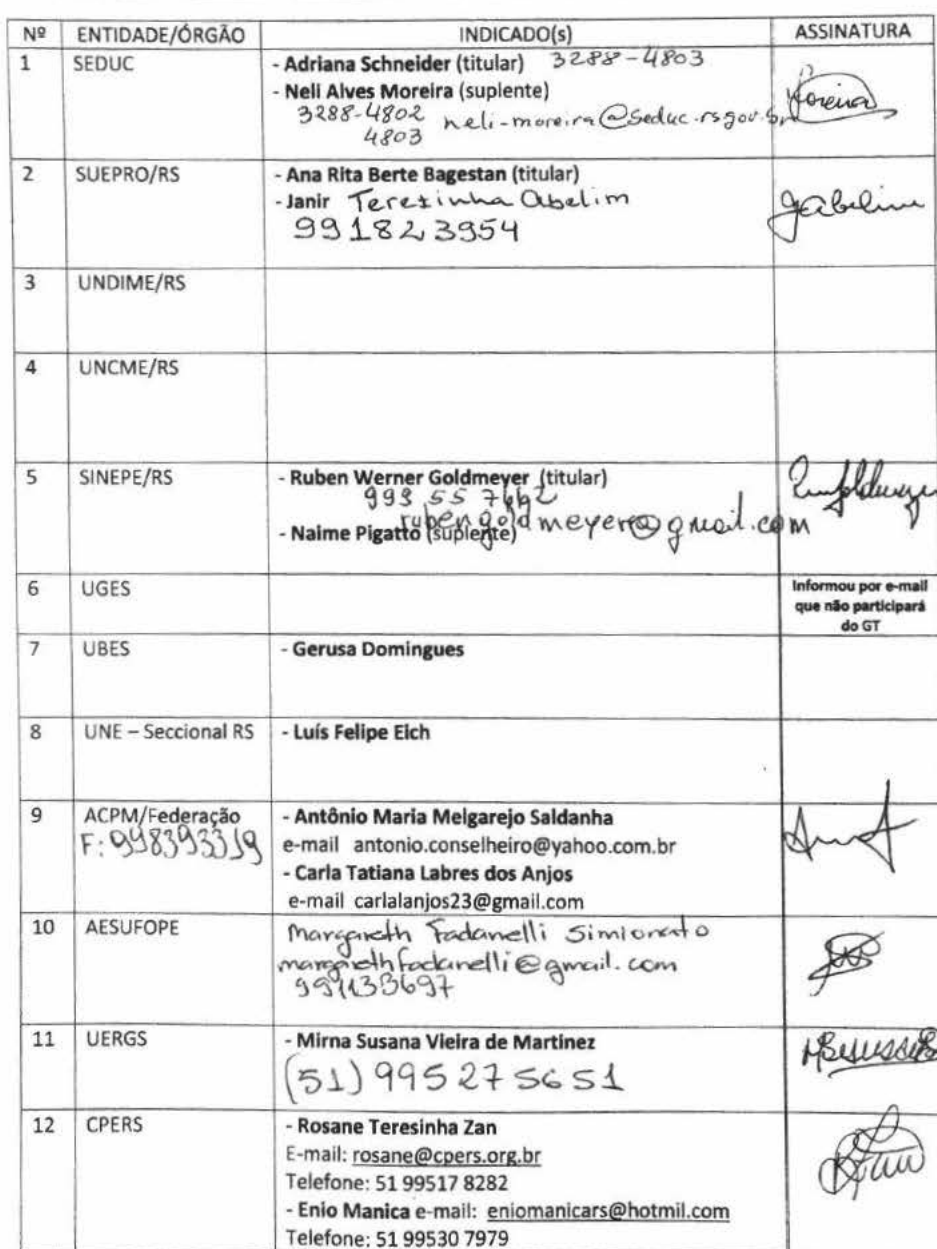 Nº ENTIDADE/ÓRGÃO INDICADO(s) ASSINATURA
1 SEDUC - Adriana Schneider (titular) 3288-4803
- Neli Alves Moreira (suplente) Moreira
3288-4802 neli-moreira@seduc.rs.gov.br
4803
2 SUEPRO/RS - Ana Rita Berte Bagestan (titular)
- Janir Terezinha Abelim
991823954
3 UNDIME/RS
4 UNCME/RS
5 SINEPE/RS - Ruben Werner Goldmeyer (titular)
999 55 7662
rubengoldmeyer@gmail.com
- Naime Pigatto (suplente)
6 UGES Informou por e-mail
que não participará
do GT
7 UBES - Gerusa Domingues
8 UNE – Seccional RS - Luís Felipe Eich
9 ACPM/Federação - Antônio Maria Melgarejo Saldanha
F: 998393319 e-mail antonio.conselheiro@yahoo.com.br
- Carla Tatiana Labres dos Anjos
e-mail carlalanjos23@gmail.com
10 AESUFOPE Margareth Fadanelli Simionato
margarethfadanelli@gmail.com
991133697
11 UERGS - Mirna Susana Vieira de Martínez
(51) 995275651
12 CPERS - Rosane Teresinha Zan
E-mail: rosane@cpers.org.br
Telefone: 51 99517 8282
- Enio Manica e-mail: eniomanicars@hotmil.com
Telefone: 51 99530 7979